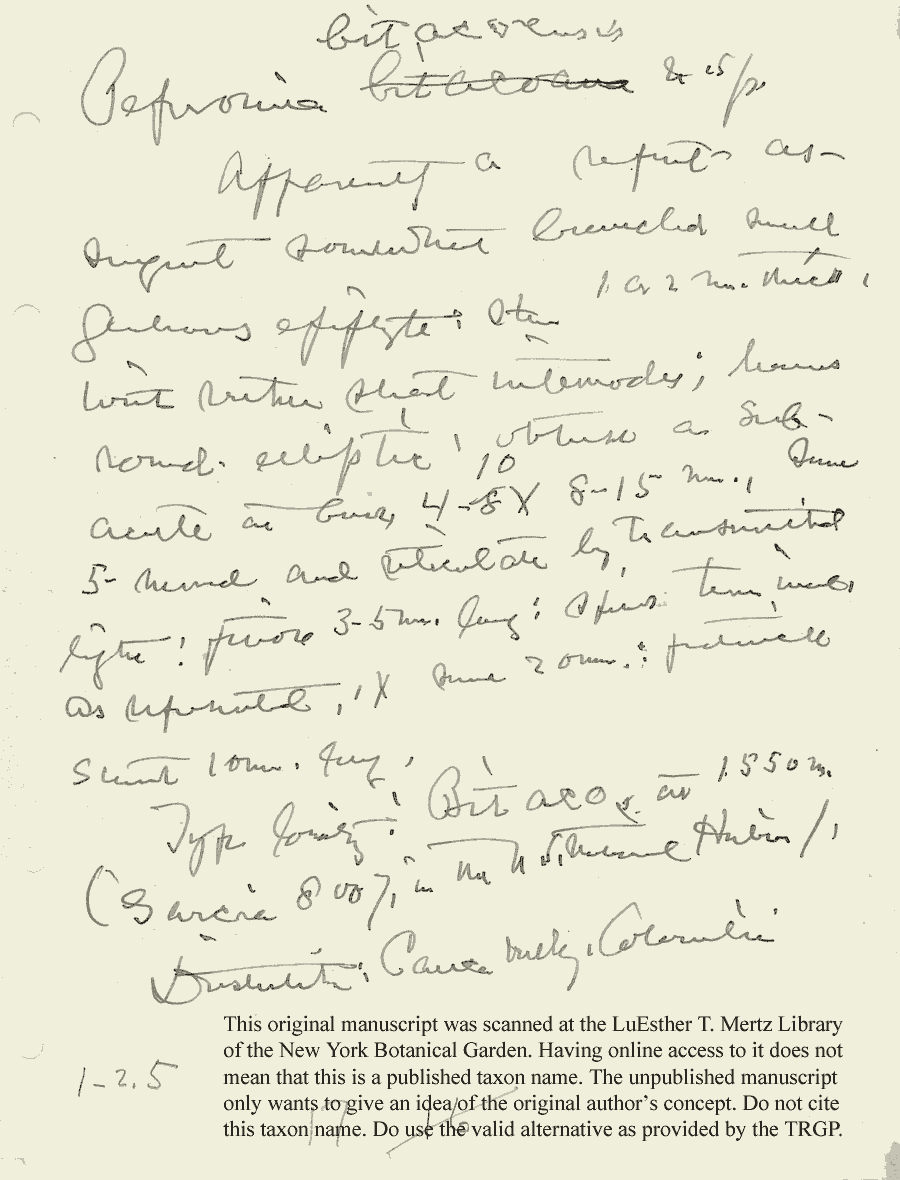 bitacoensis
Peperomia bitacoana & sp.
Apparently a repent as-
surgent somewhat branched small
glabrous epiphyte: stem 1 or 2 mm. thick,
with rather short internodes; leaves
round-elliptic, obtuse or sub-
10
acute at base, 4-8 X 8-15 mm., some
5-nerved and reticulate by transmitted
light: petiole 3-5 mm. long: spikes terminal,
1 X some 20 mm.: peduncle
some 10 mm. long.
Type locality: Bitaco, at 1550 m.
(Garcia 8007, in the U.S. National Herbarium).
Distribution: Cauca Valley, Colombia
This original manuscript was scanned at the LuEsther T. Mertz Library
of the New York Botanical Garden. Having online access to it does not
mean that this is a published taxon name. The unpublished manuscript
1-2.5
only wants to give an idea of the original author's concept. Do not cite
this taxon name. Do use the valid alternative as provided by the TRGP.